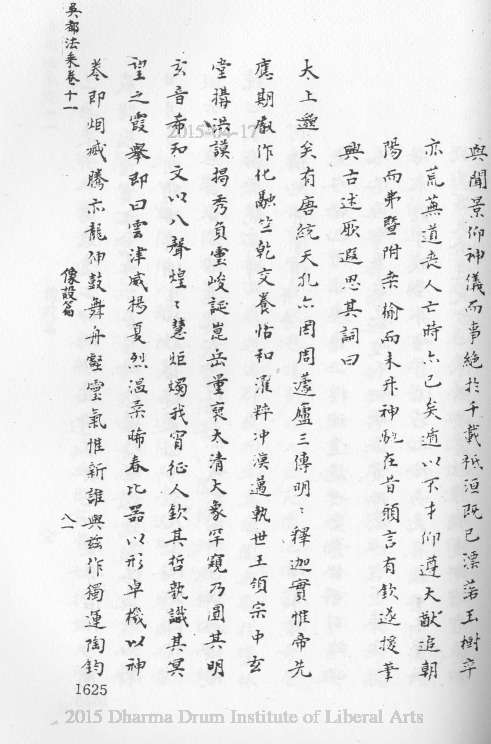 與聞景仰神儀而事絕於千載祇洹既已漂落玉樹卒
亦荒蕪道喪人亡時亦已矣遁以不才仰遵大猷追朝
陽而弗暨附桑榆而未升神馳在昔願言有欽遂援筆
興古述歌遐思其詞曰
太上邈矣有唐統天孔亦因周蘧廬三傳明〻釋迦寔惟帝先
應期叡作化融竺乾交養恬和濯粹冲漠邁軌世王領宗中玄
堂搆洪謨揭秀負靈峻誕崑岳量裒太清大象罕窺乃圓其明
玄音希和文以八聲煌〻慧炬燭我宵征人欽其哲孰識其冥
望之霞舉即曰雲津威揚夏烈溫柔晞春比器以形卓機以神
卷即烟滅騰亦龍伸鼓舞舟壑靈氣惟新誰與茲作獨運陶鈞
吳都法乘卷十一
像設篇
八一
1625
2015-04-17
2015 Dharma Drum Institute of Liberal Arts